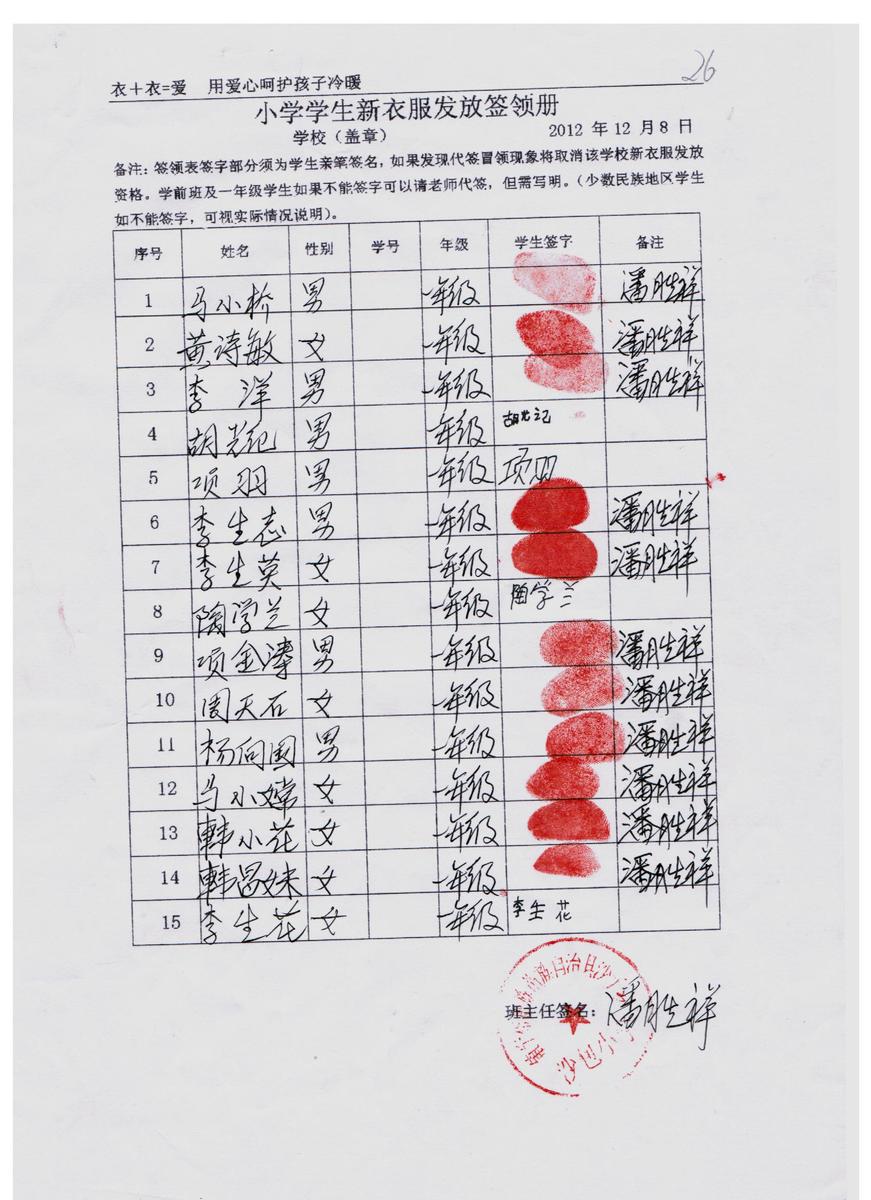 26
衣+衣=爱 用爱心呵护孩子冷暖
小学学生新衣服发放签领册
学校（盖章） 2012 年 12 月 8 日
备注：签领表签字部分须为学生亲笔签名，如果发现代签冒领现象将取消该学校新衣服发放
资格。学前班及一年级学生如果不能签字可以请老师代签，但需写明。（少数民族地区学生
如不能签字，可视实际情况说明）。
序号 姓名 性别 学号 年级 学生签字 备注
1 马小桥 男 一年级 潘胜祥
2 黄诗敏 女 一年级 潘胜祥
3 李洋 男 一年级 潘胜祥
4 胡光纪 男 一年级 胡光记
5 项羽 男 一年级 项羽
6 李生志 男 一年级 潘胜祥
7 李生英 女 一年级 潘胜祥
8 陶学兰 女 一年级 陶学兰
9 项金涛 男 一年级 潘胜祥
10 周天石 女 一年级 潘胜祥
11 杨向国 男 一年级 潘胜祥
12 马小嫦 女 一年级 潘胜祥
13 韩小花 女 一年级 潘胜祥
14 韩 妹 女 一年级 潘胜祥
15 李生花 女 一年级 李生花
班主任签名：潘胜祥
族自治县沙
沙包小学